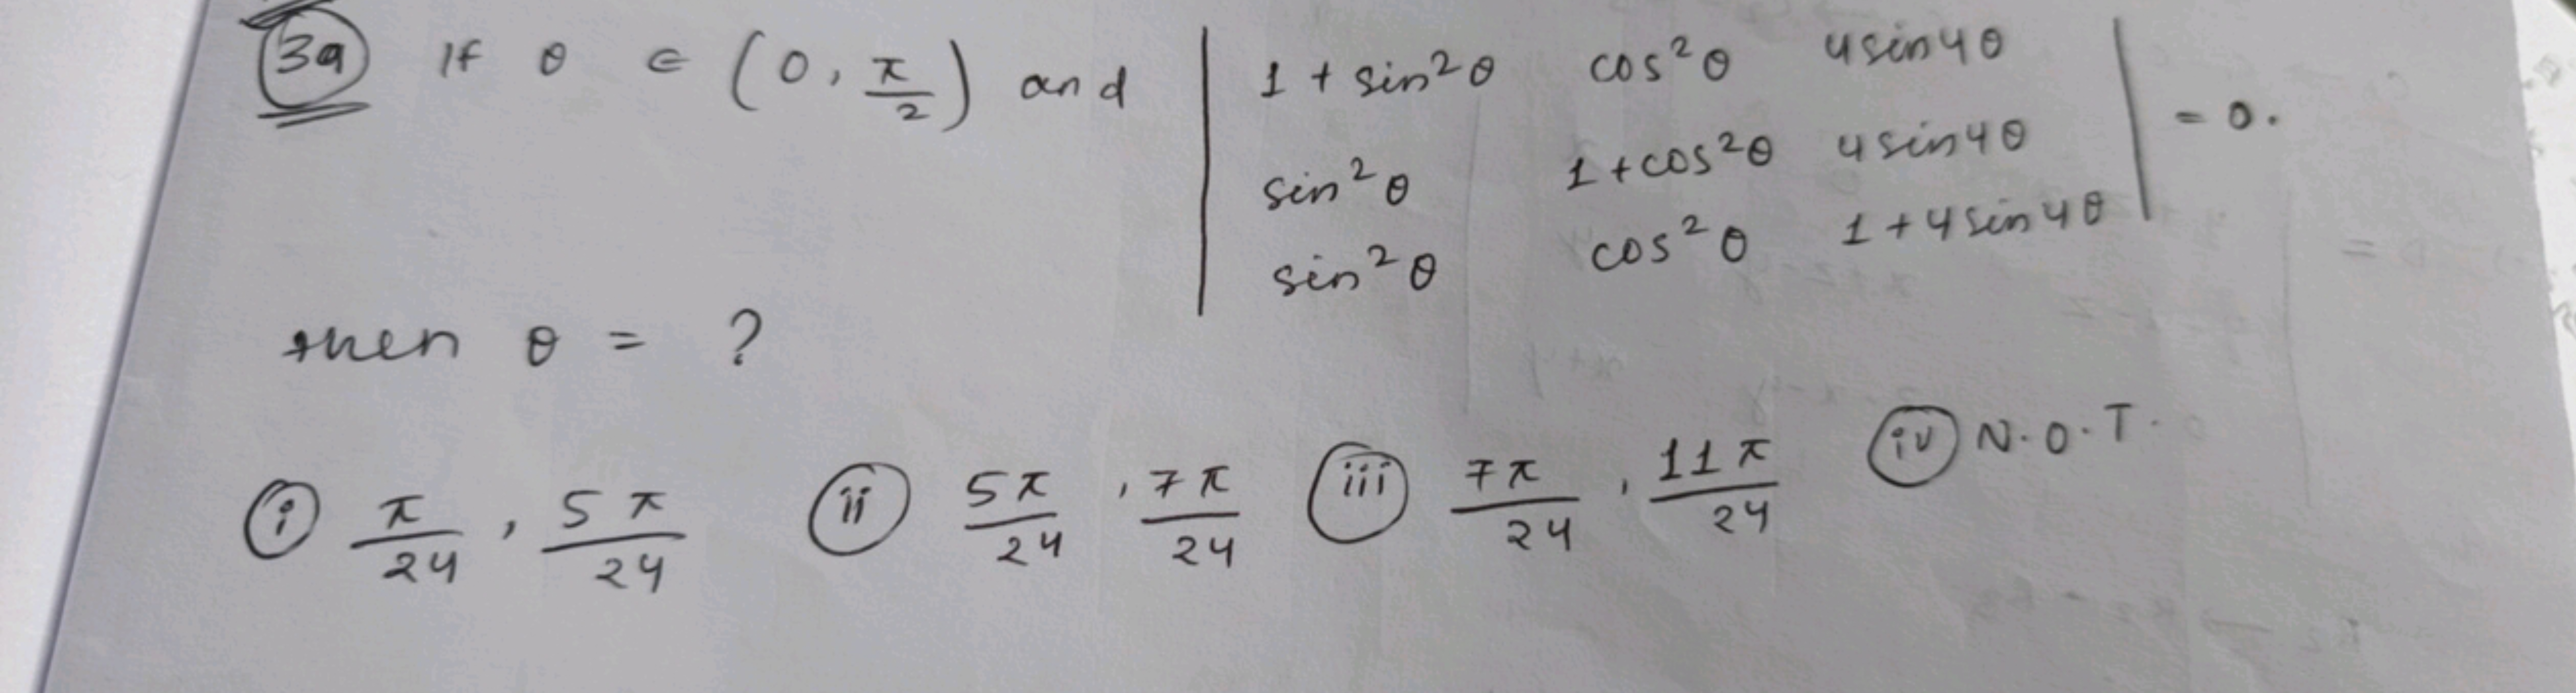 39 If θ ∈ (0, π/2) and | 1 + sin²θ cos²θ 4sin4θ |
| sin²θ 1 + cos²θ 4sin4θ | = 0.
| sin²θ cos²θ 1 + 4sin4θ |
then θ = ?
(i) π/24, 5π/24 (ii) 5π/24, 7π/24 (iii) 7π/24, 11π/24 (iv) N.O.T.